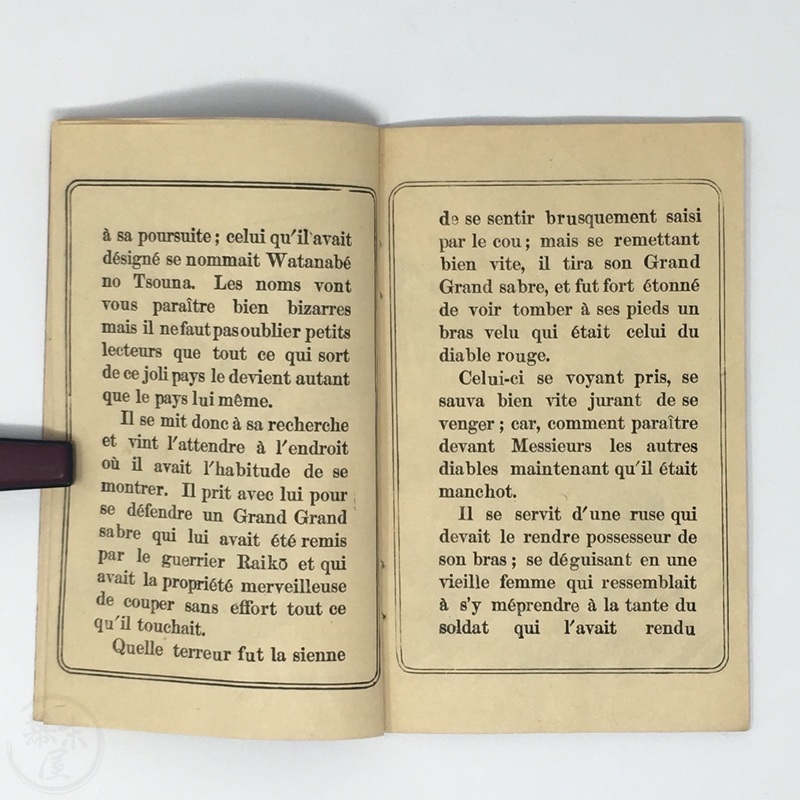 à sa poursuite ; celui qu'il avait
désigné se nommait Watanabé
no Tsouna. Les noms vont
vous paraître bien bizarres
mais il ne faut pas oublier petits
lecteurs que tout ce qui sort
de ce joli pays le devient autant
que le pays lui même.
Il se mit donc à sa recherche
et vint l'attendre à l'endroit
où il avait l'habitude de se
montrer. Il prit avec lui pour
se défendre un Grand Grand
sabre qui lui avait été remis
par le guerrier Raikō et qui
avait la propriété merveilleuse
de couper sans effort tout ce
qu'il touchait.
Quelle terreur fut la sienne
de se sentir brusquement saisi
par le cou ; mais se remettant
bien vite, il tira son Grand
Grand sabre, et fut fort étonné
de voir tomber à ses pieds un
bras velu qui était celui du
diable rouge.
Celui-ci se voyant pris, se
sauva bien vite jurant de se
venger ; car, comment paraître
devant Messieurs les autres
diables maintenant qu'il était
manchot.
Il se servit d'une ruse qui
devait le rendre possesseur de
son bras ; se déguisant en une
vieille femme qui ressemblait
à s'y méprendre à la tante du
soldat qui l'avait rendu